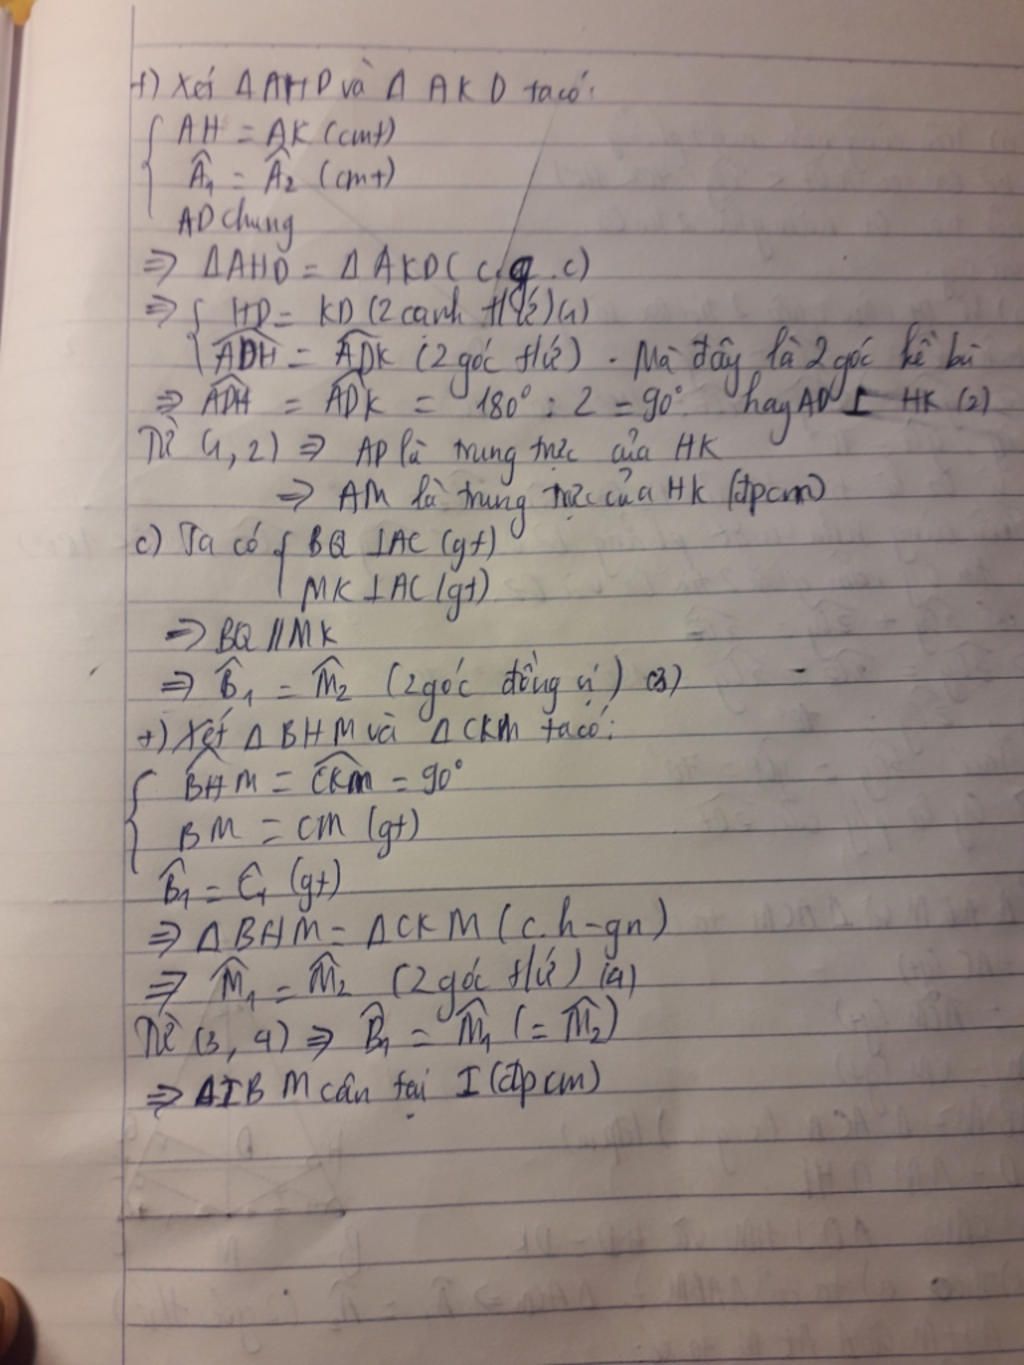 +) Xét Δ AHD và Δ AKD ta có:
{ AH = AK (cmt)
Â₁ = Â₂ (cmt)
AD chung
⇒ ΔAHD = ΔAKD (c.g.c)
⇒ { HD = KD (2 cạnh t/ứ) (1)
ADH^ = ADK^ (2 góc t/ứ). Mà đây là 2 góc kề bù
⇒ ADH^ = ADK^ = 180° : 2 = 90° hay AD ⊥ HK (2)
Từ (1, 2) ⇒ AD là trung trực của HK
⇒ AM là trung trực của HK (đpcm)
c) Ta có { BQ ⊥ AC (gt)
MK ⊥ AC (gt)
⇒ BQ // MK
⇒ B̂₁ = M̂₂ (2 góc đồng vị) (3)
+) Xét Δ BHM và Δ CKM ta có:
{ BHM^ = CKM^ = 90°
BM = CM (gt)
B̂₁ = Ĉ₁ (gt)
⇒ ΔBHM = ΔCKM (c.h-gn)
⇒ M̂₁ = M̂₂ (2 góc t/ứ) (4)
Từ (3, 4) ⇒ B̂₁ = M̂₁ (= M̂₂)
⇒ ΔIBM cân tại I (đpcm)